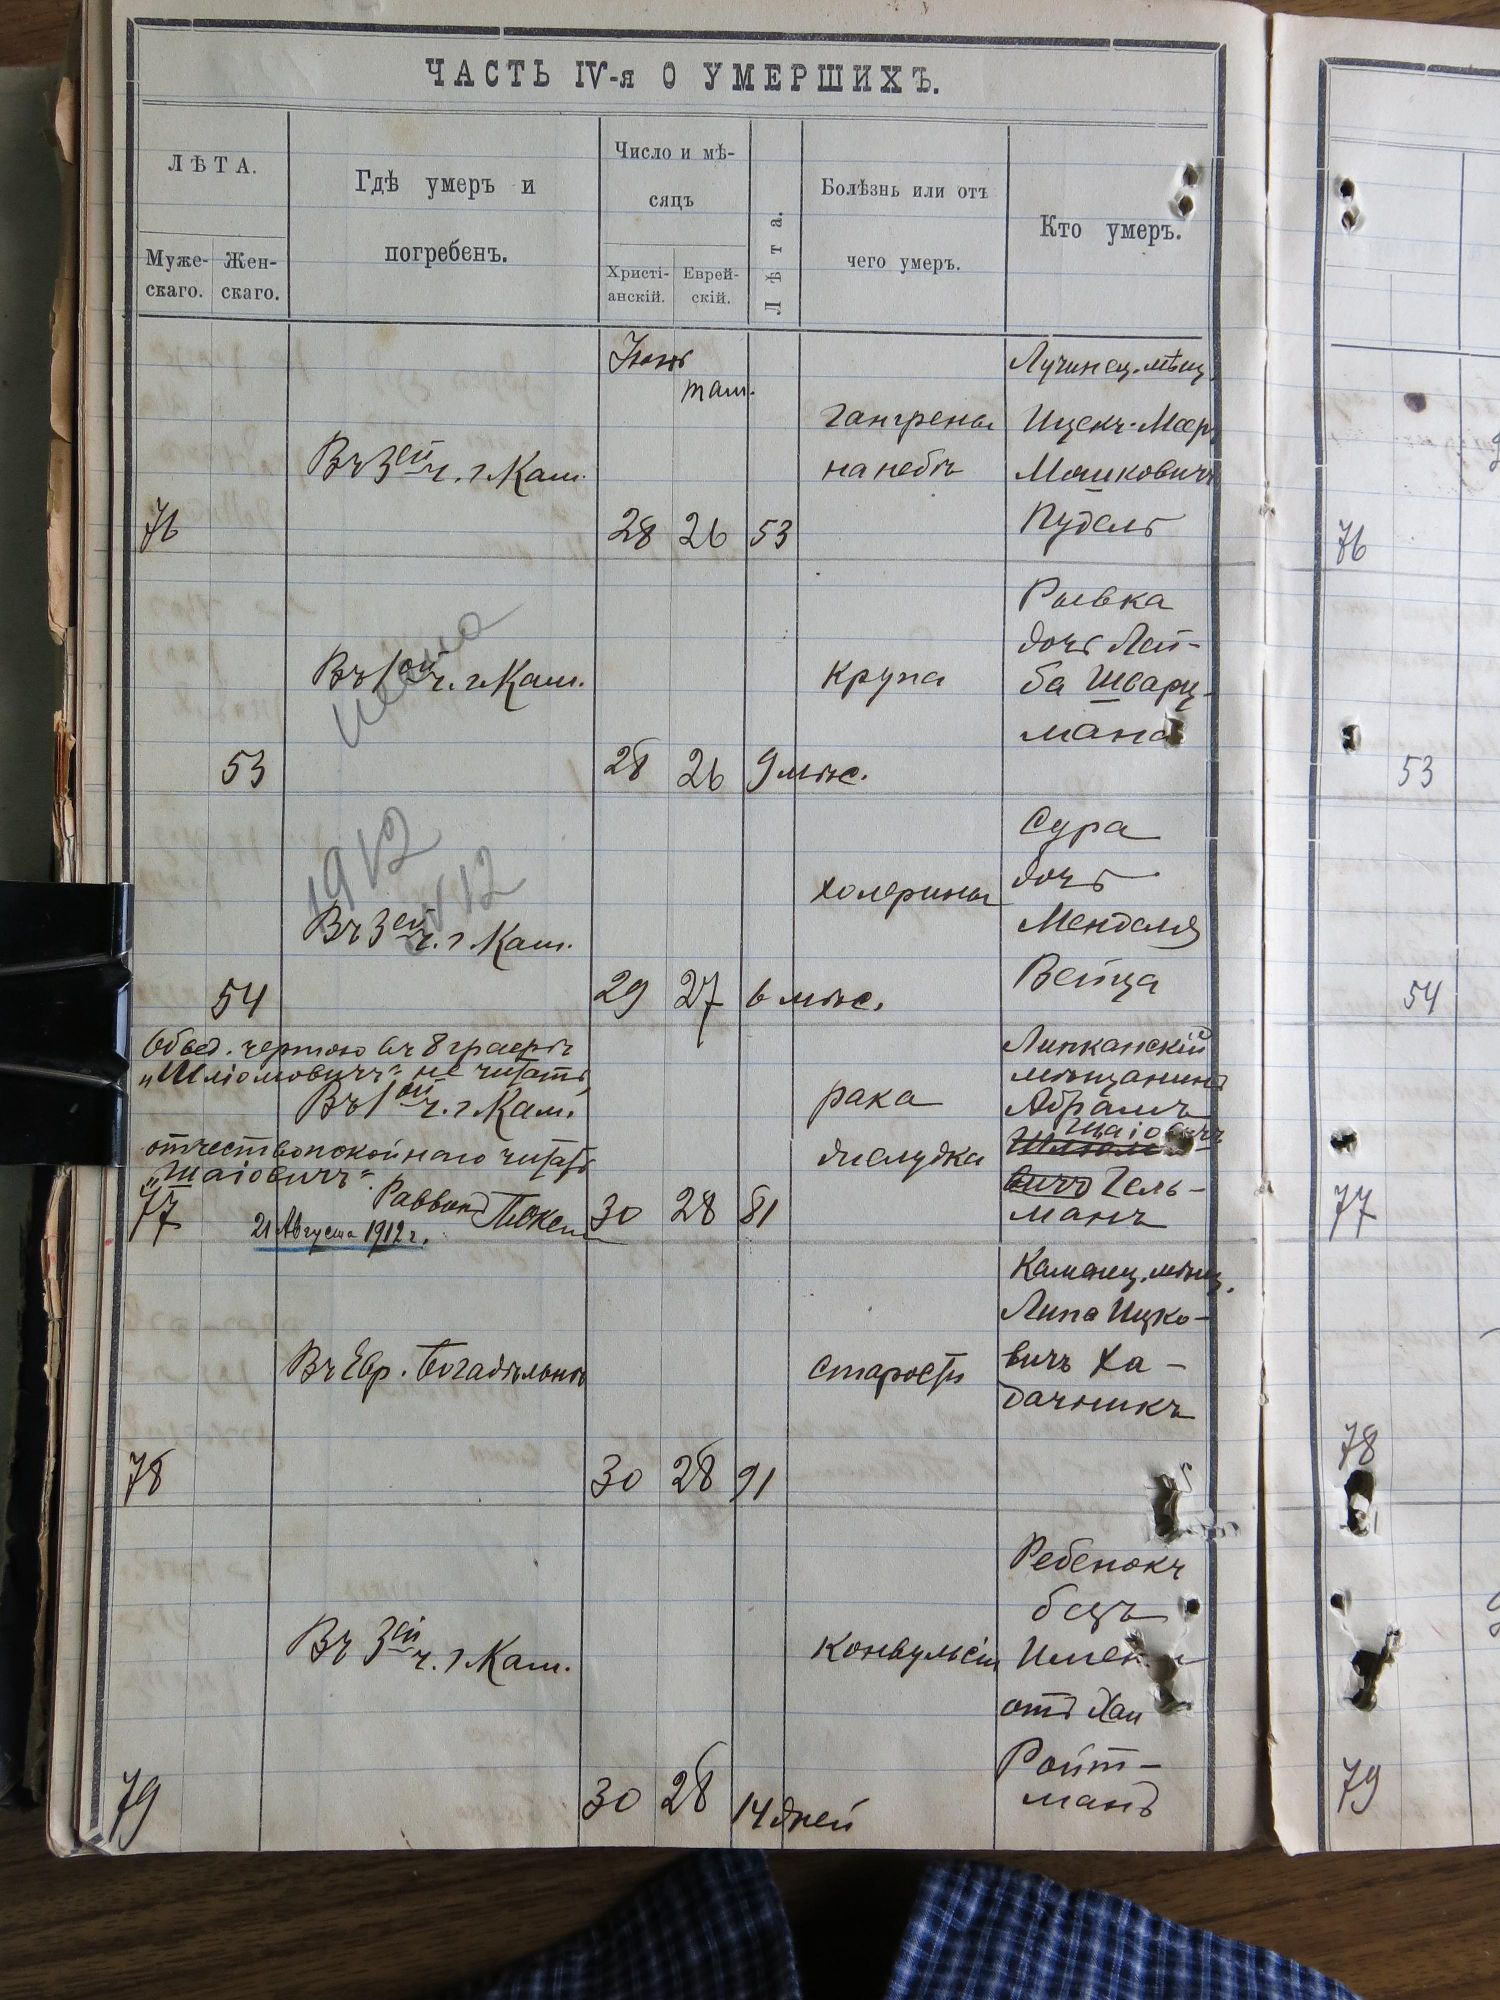 ЧАСТЬ IV-я О УМЕРШИХЪ.
ЛѢТА.
Муже-
скаго.
Жен-
скаго.
Гдѣ умеръ и
погребенъ.
Число и мѣ-
сяцъ
Христі-
анскій.
Еврей-
скій.
Лѣта.
Болѣзнь или отъ
чего умеръ.
Кто умеръ.
Іюнь
там.
76
Въ 3ей ч. г. Кам.
28 26 53
гангрены
на небѣ
Лучинец. мѣщ.
Ицекъ-Меер
Мошковичъ
Пудель
76
53
Въ 1ой ч. г. Кам.
28 26 9 мѣс.
крупа
Рывка
дочь Лей-
ба Шварц-
мана
53
1912
54
Въ 3ей ч. г. Кам.
29 27 6 мѣс.
холерины
Сура
дочь
Менделя
Вейца
54
Обвед. чертою въ 8 графѣ
„Шліомовичъ“ не читать,
Въ 1ой ч. г. Кам.
отчество покойнаго читать
„Шаіовичъ“.
Раввинъ
21 Августа 1912 г.
77
30 28 81
рака
желудка
Липканскій
мѣщанинъ
Абрамъ
Шаіовичъ
Шліомо
вичъ Гель-
манъ
77
78
Въ Евр. богадѣльнѣ
30 28 91
старости
Каменец. мѣщ.
Липа Ицко-
вичъ Ха-
дачникъ
78
79
Въ 3ей ч. г. Кам.
30 28 14 дней
конвульсіи
Ребенокъ
безъ
Имени
отъ Хаи
Ройт-
манъ
79